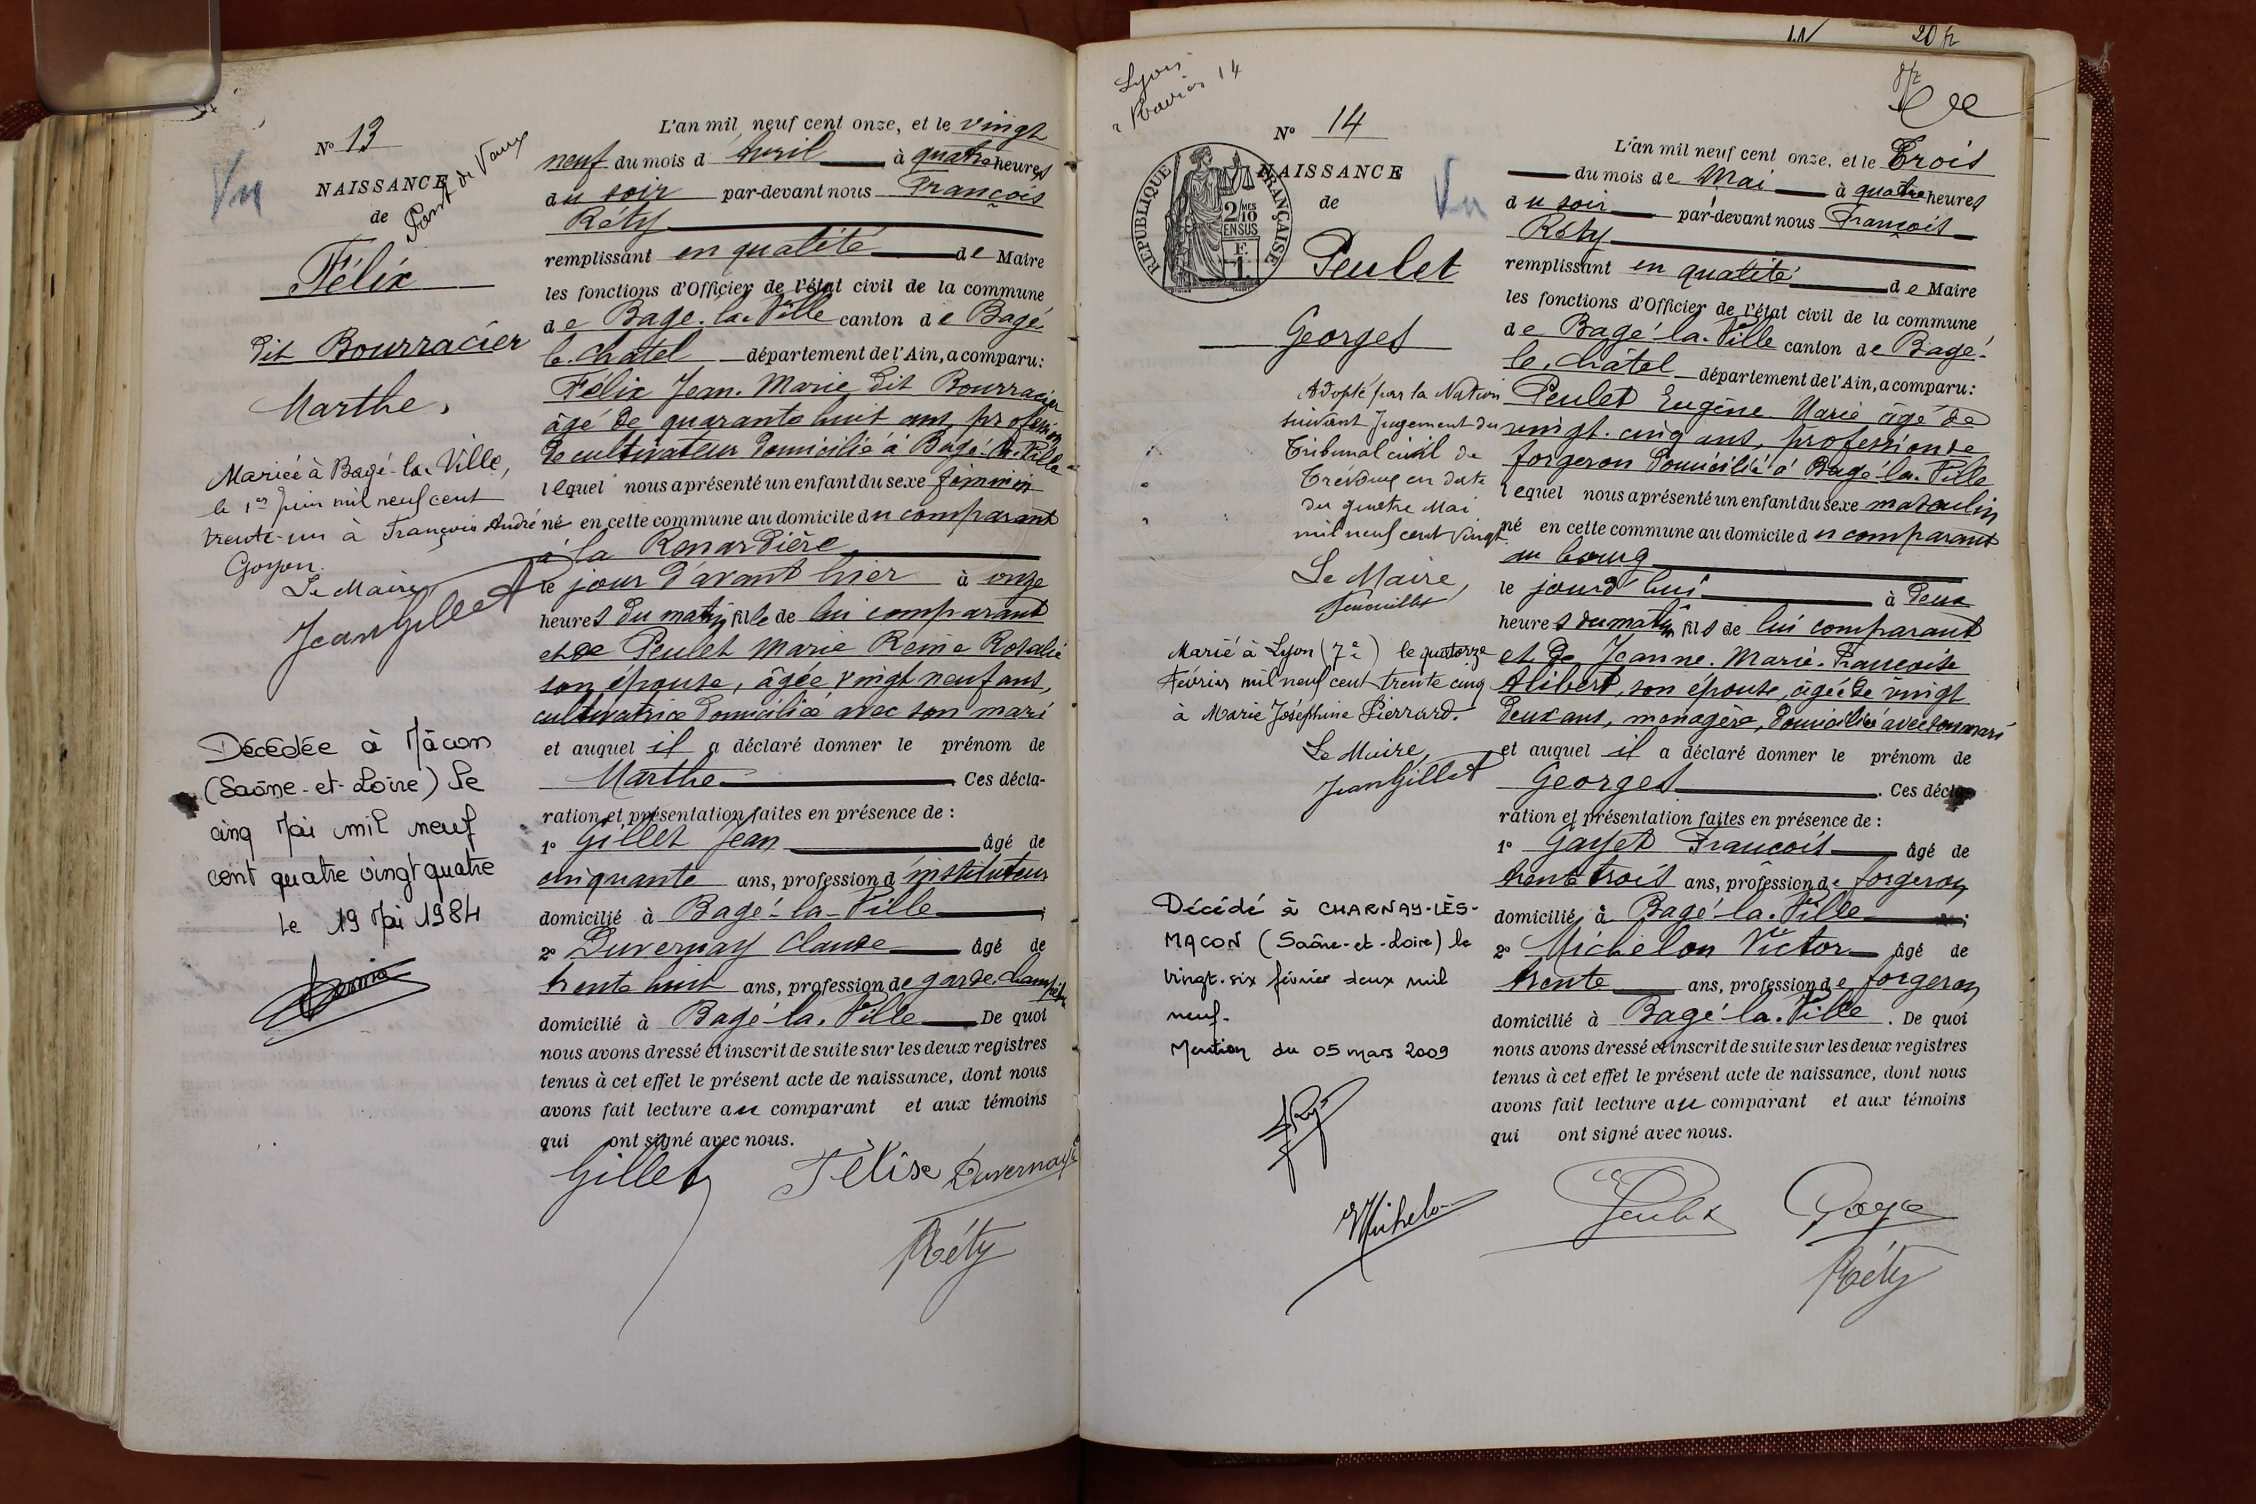 N° 13
NAISSANCE
de
Pont de Vaux
Vu
Félix
dit Bourracier
Marthe,
Mariée à Bagé-la-Ville,
le 1er Juin mil neuf cent
trente-un à François André
Goyon.
Le Maire
Jean Gillet
Décédée à Mâcon
(Saône-et-Loire) le
cinq Mai mil neuf
cent quatre vingt quatre
le 19 Mai 1984
L'an mil neuf cent onze, et le vingt
neuf du mois d'Avril à quatre heures
du soir par-devant nous François
Réty
remplissant en qualité de Maire
les fonctions d'Officier de l'état civil de la commune
de Bagé-la-Ville canton de Bagé
le-Châtel département de l'Ain, a comparu:
Félix Jean-Marie dit Bourracier
âgé de quarante huit ans, profession
de cultivateur domicilié à Bagé-la-Ville
lequel nous a présenté un enfant du sexe féminin
né en cette commune au domicile du comparant
à la Renardière
le jour d'avant hier à onze
heures du matin fille de lui comparant
et de Peulet Marie Reine Rosalie
son épouse, âgée vingt neuf ans,
cultivatrice domiciliée avec son mari
et auquel il a déclaré donner le prénom de
Marthe Ces décla-
ration et présentation faites en présence de :
1° Gillet Jean âgé de
cinquante ans, profession d'instituteur
domicilié à Bagé-la-Ville ;
2° Duvernay Claude âgé de
trente huit ans, profession de garde champêtre
domicilié à Bagé-la-Ville De quoi
nous avons dressé et inscrit de suite sur les deux registres
tenus à cet effet le présent acte de naissance, dont nous
avons fait lecture au comparant et aux témoins
qui ont signé avec nous.
Gillet Félix Duvernay
Réty
20 fr
Lyon
14
N° 14
NAISSANCE
de
RÉPUBLIQUE FRANÇAISE
2/10
EN SUS
Vu
Peulet
Georges
Adopté par la Nation
suivant Jugement du
Tribunal civil de
Trévoux en date
du quatre Mai
mil neuf cent vingt.
Le Maire,
Marié à Lyon (7e) le quatorze
Février mil neuf cent trente cinq
à Marie Joséphine Pierrard.
Le Maire,
Jean Gillet
Décédé à CHARNAY-LÈS-
MACON (Saône-et-Loire) le
vingt-six février deux mil
neuf.
Mention du 05 mars 2009
L'an mil neuf cent onze, et le Trois
du mois de Mai à quatre heures
du soir par-devant nous François
Réty
remplissant en qualité de Maire
les fonctions d'Officier de l'état civil de la commune
de Bagé-la-Ville canton de Bagé-
le-Châtel département de l'Ain, a comparu:
Peulet Eugène Marie âgé de
vingt-cinq ans, profession de
forgeron domicilié à Bagé-la-Ville
lequel nous a présenté un enfant du sexe masculin
né en cette commune au domicile du comparant
au bourg
le jourd'hui à deux
heures du matin fils de lui comparant
et de Jeanne-Marie-Françoise
Alibert, son épouse, âgée de vingt
deux ans, ménagère, domiciliée avec son mari
et auquel il a déclaré donner le prénom de
Georges . Ces décla-
ration et présentation faites en présence de :
1° Gayet François âgé de
trente trois ans, profession de forgeron
domicilié à Bagé-la-Ville ;
2° Michelon Victor âgé de
trente ans, profession de forgeron
domicilié à Bagé-la-Ville . De quoi
nous avons dressé et inscrit de suite sur les deux registres
tenus à cet effet le présent acte de naissance, dont nous
avons fait lecture au comparant et aux témoins
qui ont signé avec nous.
Michelon Peulet Gayet
Réty